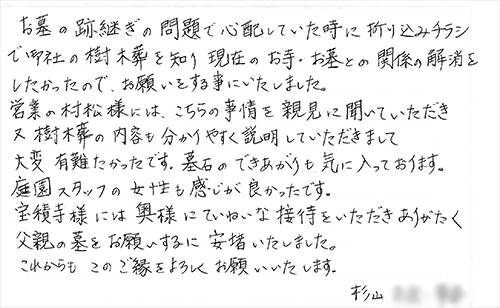 お墓の跡継ぎの問題で心配していた時に折り込みチラシ
で御社の樹木葬を知り現在のお寺・お墓との関係の解消を
したかったので、お願いをする事にいたしました。
営業の村松様には、こちらの事情を親見に聞いていただき
又樹木葬の内容も分かりやすく説明していただきまして
大変有難たかったです。墓石のできあがりも気に入っております。
庭園スタッフの女性も感じが良かったです。
宝積寺様には奥様にていねいな接待をいただきありがたく
父親の墓をお願いするに安堵いたしました。
これからもこのご縁をよろしくお願いいたします。
杉山